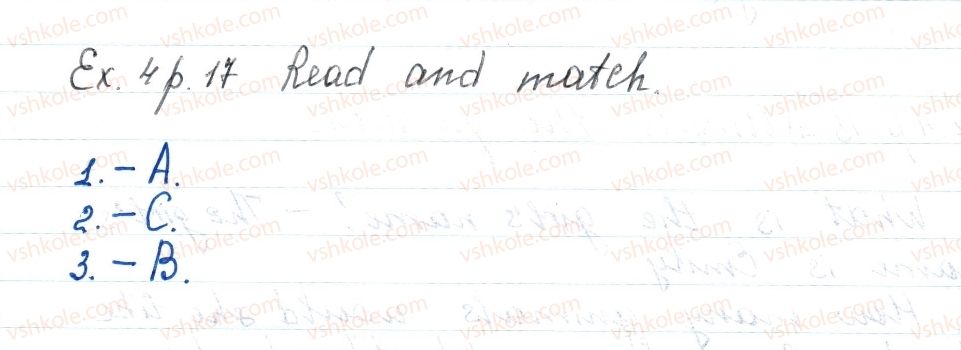 Ex. 4 p. 17 Read and match.
1. – A.
2. – C.
3. – B.